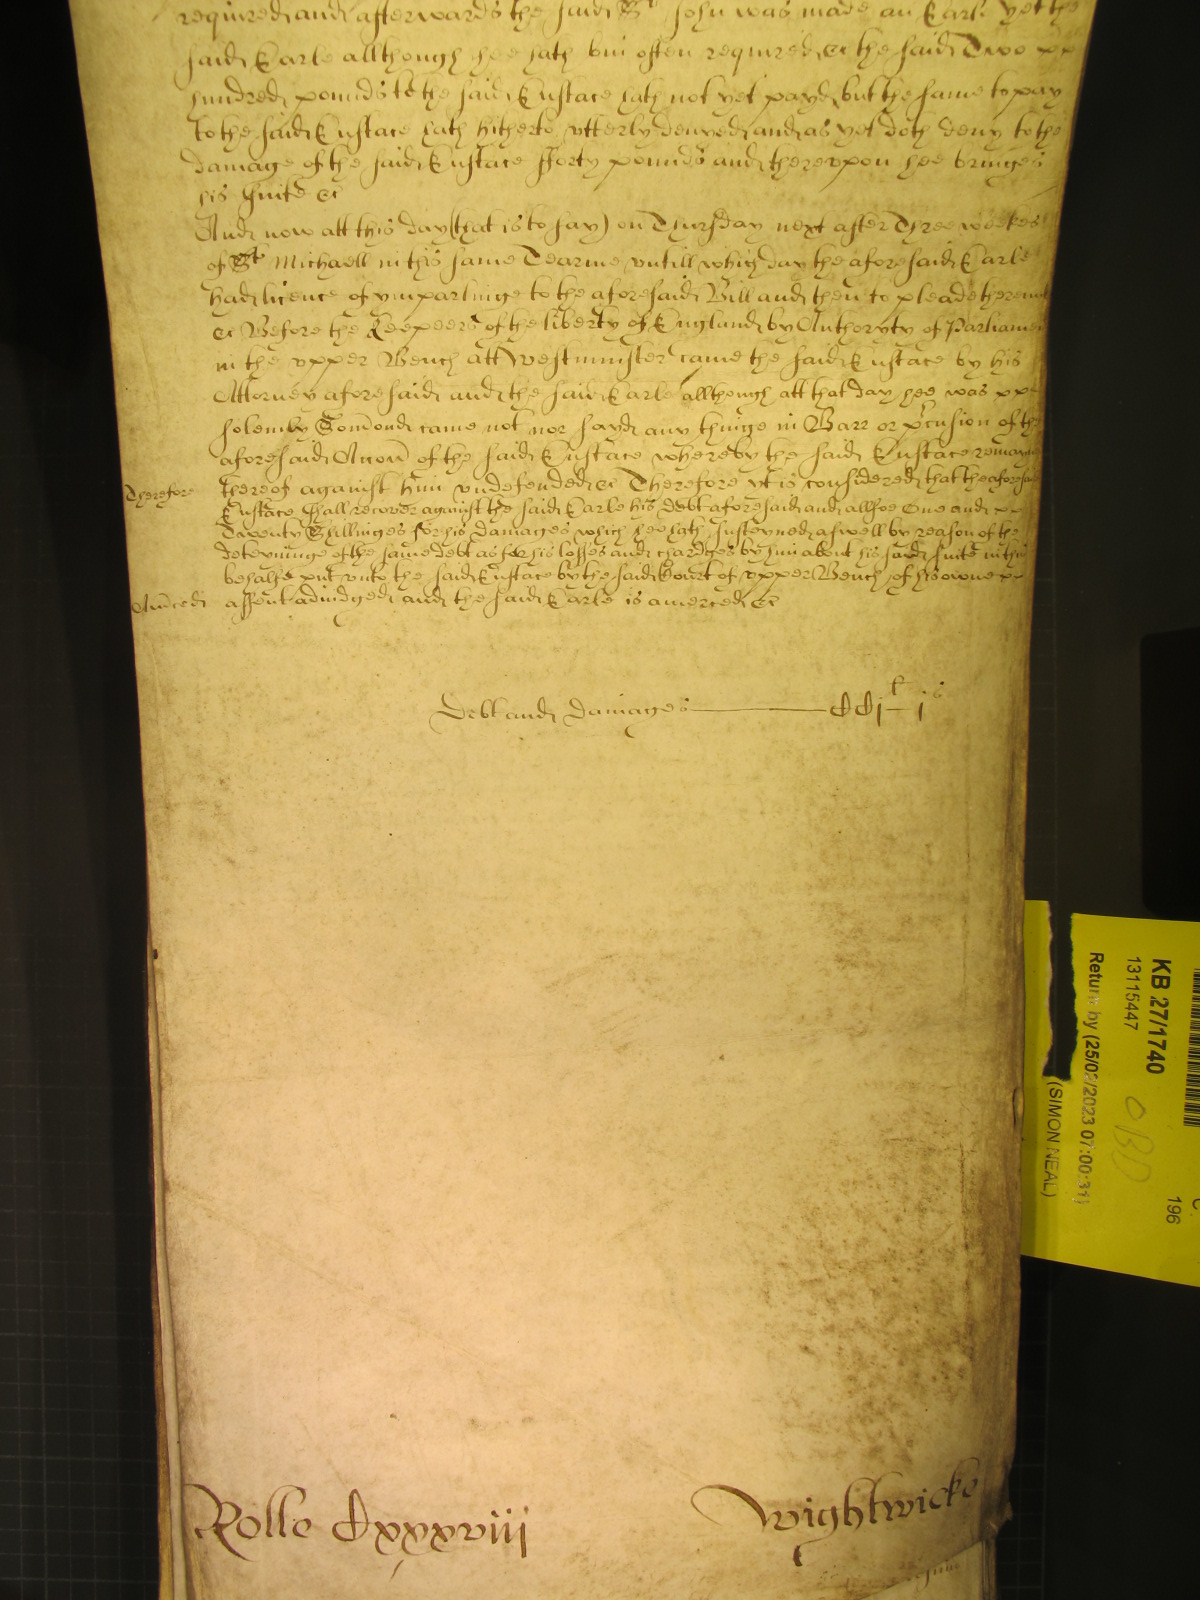 required and afterwards the said Sr John was made an Earle yet the
said Earle allthough hee hath bin often required &c the said Two xx
hundred pounds to the said Eustace hath not yet payd but the same to pay
to the said Eustace hath hitherto vtterly denyed and as yet doth deny to the
damage of the said Eustace fforty pounds and therevpon hee bringes
his suite &c
And now att this day (that is to say) on Thursday next after Three weekes
of St Michaell in this same Tearme vntill which day the aforesaid Earle
had licence of ymparlinge to the aforesaid Bill and then to pleade therevnt
&c Before the Keepers of the liberty of England by Authoryty of Parliamen
in the vpper Bench att Westminster came the said Eustace by his
Attorney aforesaid and the said Earle allthough att that day hee was xx
solemly Comond came not nor sayd any thinge in Barr or pclusion of the
aforesaid Accon of the said Eustace whereby the said Eustace remayne
Therefore thereof against him vndefended &c Therefore yt is considered that the aforesaid
Eustace shall recover against the said Earle his debt aforesaid and allsoe One and xx
Twenty Shillinges for his damages which hee hath susteyned aswell by reason of the
deteyninge of the same debt as for his losses and chardges by him about his said suite in this
behalfe put vnto the said Eustace by the said Court of vpper Bench of his owne xx
Amced assent adiudged and the said Earle is amerced &c
Debt and Damages CCjl js
Rolle Cxxxviii Wightwicke
KB 27/1740
13115447
Return by (25/02/2023 07:00:31)
(SIMON NEAL)
196
OBD